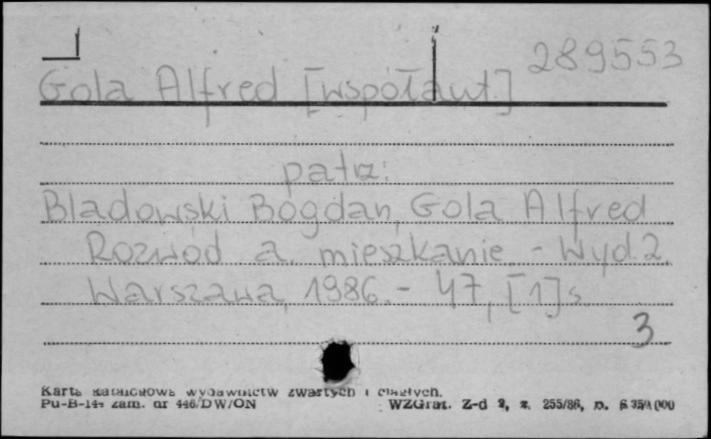 289553
Gola Alfred [współaut.]
patrz:
Bladowski Bogdan, Gola Alfred
Rozwód a mieszkanie. - Wyd. 2.
Warszawa, 1986. - 47, [1] s.
3
Karta katalogowa wydawnictw zwartych i ciągłych.
Pu-B-14a zam. nr 446/DW/ON WZGraf. Z-d 2, z. 255/86, n.